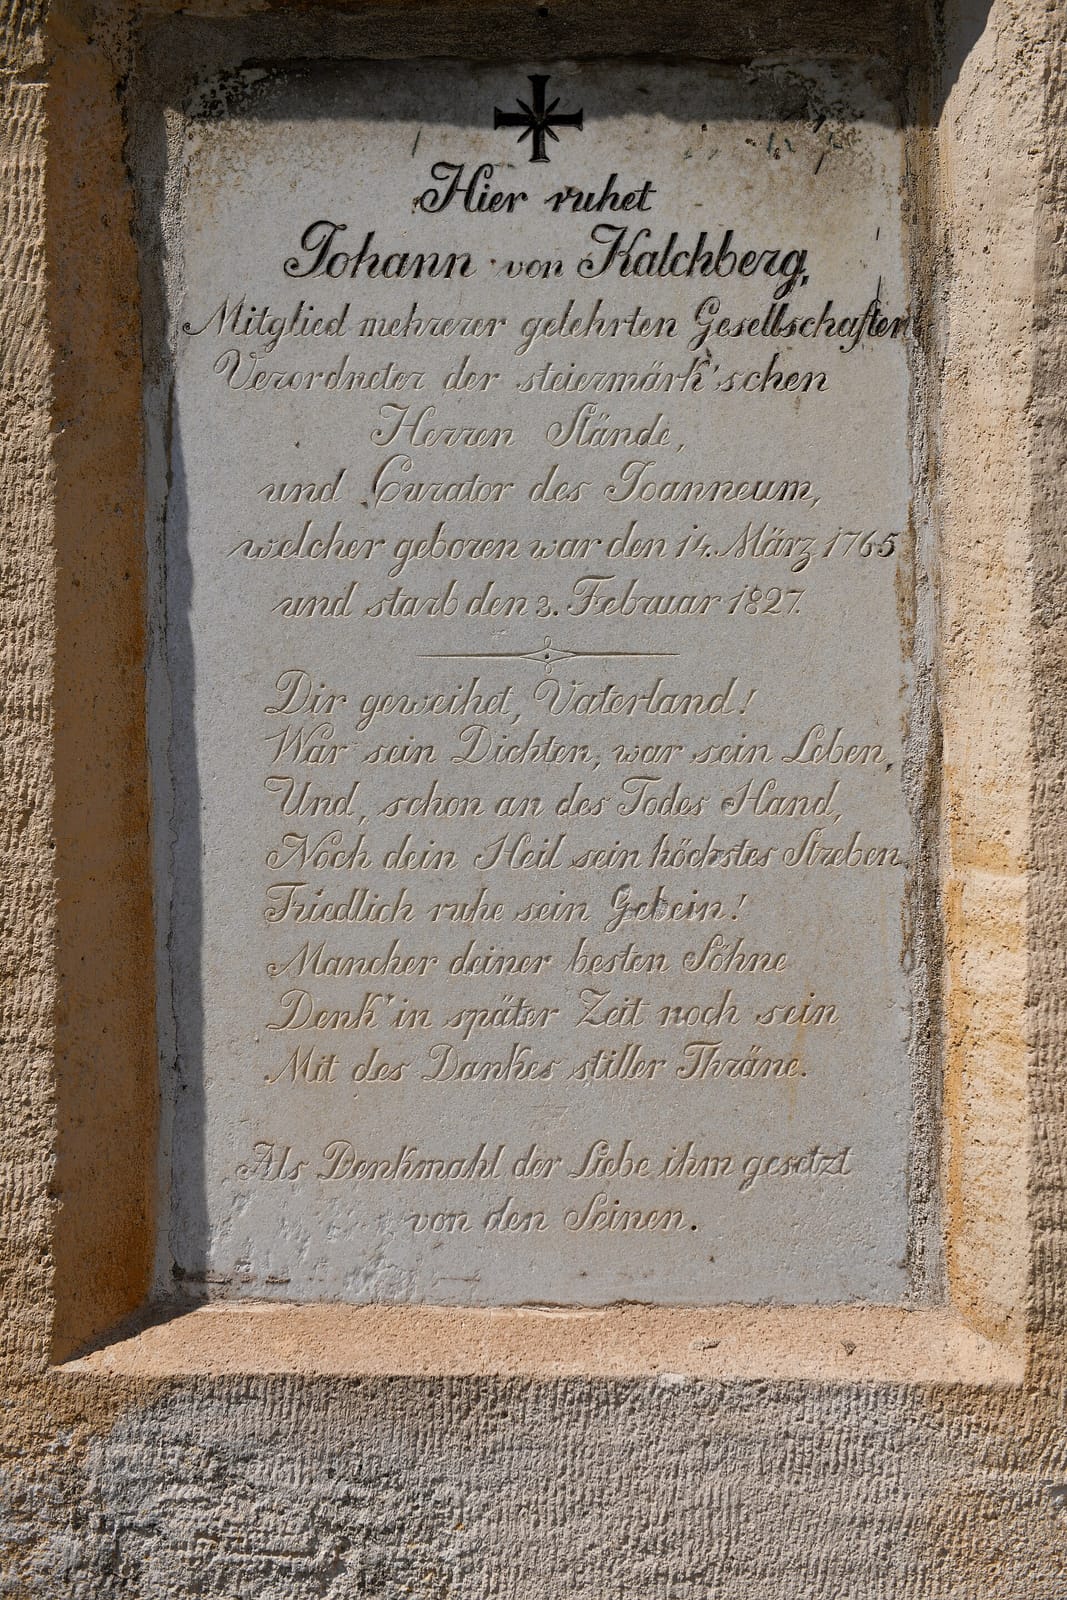 Hier ruhet
Johann von Kalchberg,
Mitglied mehrerer gelehrten Gesellschaften
Verordneter der steiermärk'schen
Herren Stände,
und Curator des Joanneum,
welcher geboren war den 14. März 1765
und starb den 3. Februar 1827.
Dir geweihet, Vaterland!
War sein Dichten, war sein Leben,
Und, schon an des Todes Hand,
Noch dein Heil sein höchstes Streben
Friedlich ruhe sein Gebein!
Mancher deiner besten Söhne
Denk' in später Zeit noch sein
Mit des Dankes stiller Thräne.
Als Denkmahl der Liebe ihm gesetzt
von den Seinen.